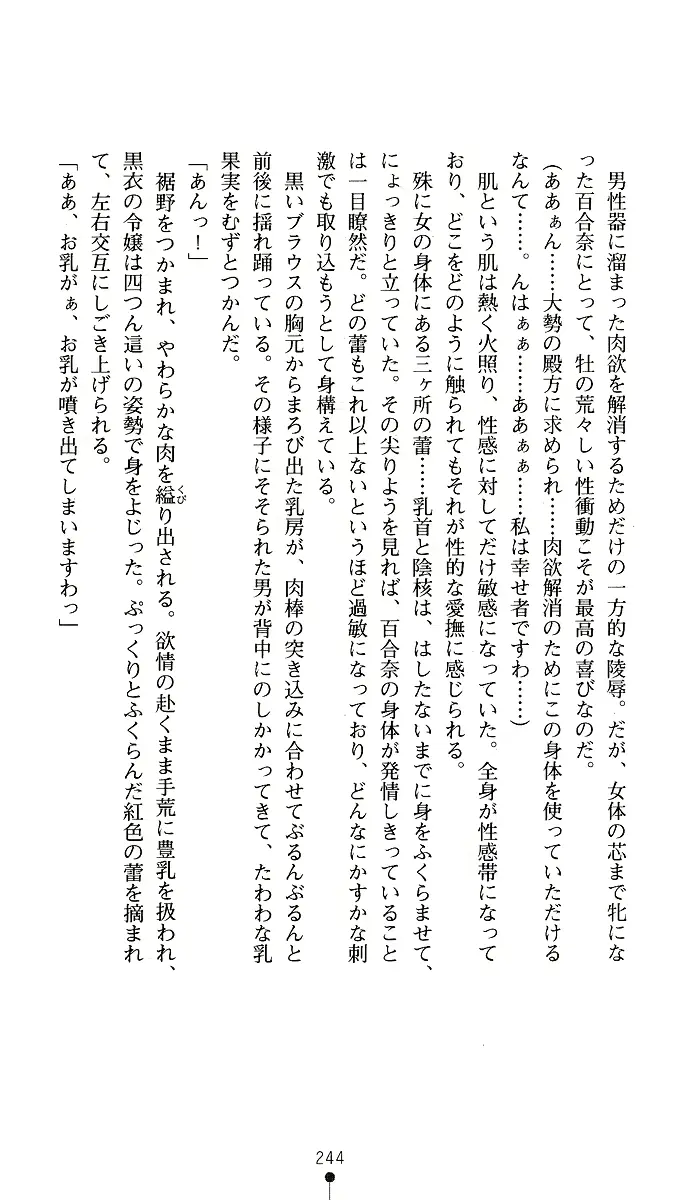 男性器に溜まった肉欲を解消するためだけの一方的な陵辱。だが、女体の芯まで牝にな
った百合奈にとって、牡の荒々しい性衝動こそが最高の喜びなのだ。
(ああぁん……大勢の殿方に求められ……肉欲解消のためにこの身体を使っていただける
なんて……。んはぁぁ……ああぁぁ……私は幸せ者ですわ……)
肌という肌は熱く火照り、性感に対してだけ敏感になっていた。全身が性感帯になって
おり、どこをどのように触られてもそれが性的な愛撫に感じられる。
殊に女の身体にある三ヶ所の蕾……乳首と陰核は、はしたないまでに身をふくらませて、
にょっきりと立っていた。その尖りようを見れば、百合奈の身体が発情しきっていること
は一目瞭然だ。どの蕾もこれ以上ないというほど過敏になっており、どんなにかすかな刺
激でも取り込もうとして身構えている。
黒いブラウスの胸元からまろび出た乳房が、肉棒の突き込みに合わせてぶるんぶるんと
前後に揺れ踊っている。その様子にそそられた男が背中にのしかかってきて、たわわな乳
果実をむずとつかんだ。
「あんっ！」
裾野をつかまれ、やわらかな肉を縊り出される。欲情の赴くまま手荒に豊乳を扱われ、
くび
黒衣の令嬢は四つん這いの姿勢で身をよじった。ぷっくりとふくらんだ紅色の蕾を摘まれ
て、左右交互にしごき上げられる。
「ああ、お乳がぁ、お乳が噴き出てしまいますわっ」
244